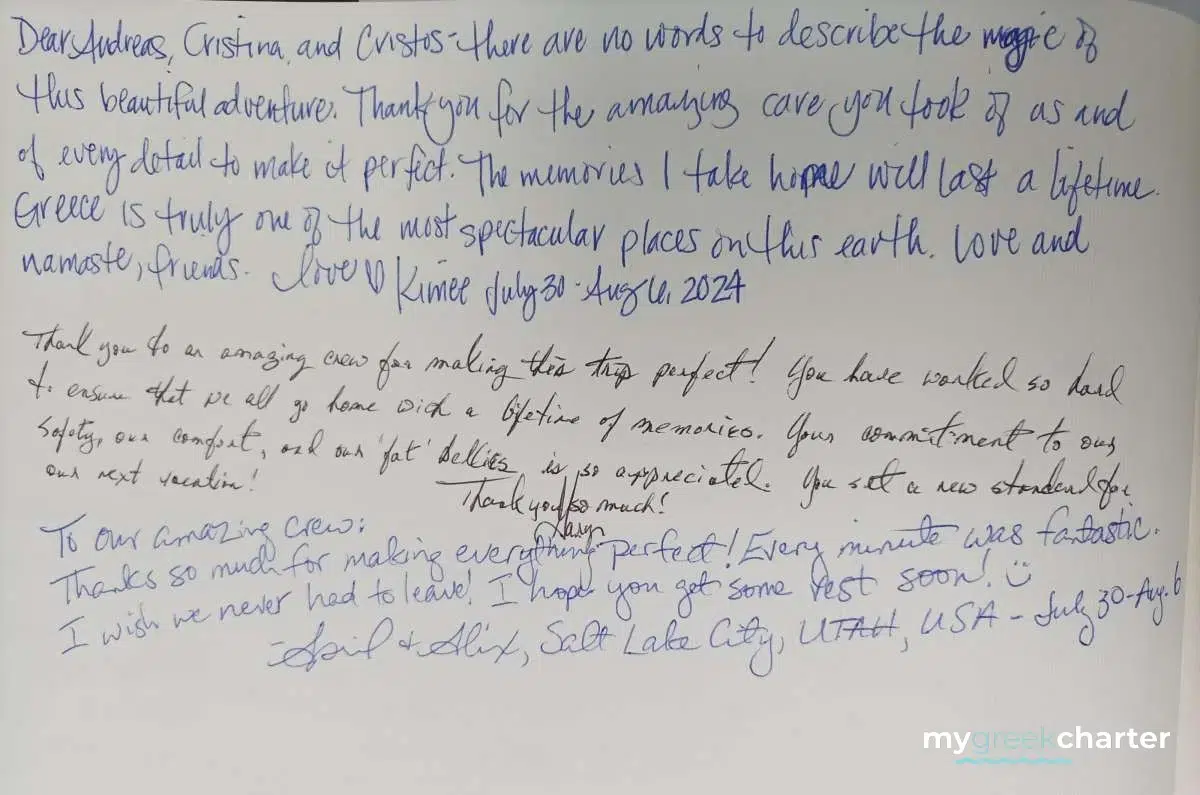 Dear Andreas, Cristina, and Cristos - there are no words to describe the magic of
this beautiful adventure. Thank you for the amazing care you took of us and
of every detail to make it perfect. The memories I take home will last a lifetime.
Greece is truly one of the most spectacular places on this earth. Love and
namaste, friends. love ♡ Kimee July 30 - Aug 6, 2024
Thank you to an amazing crew for making this trip perfect! You have worked so hard
to ensure that we all go home with a lifetime of memories. Your commitment to our
safety, our comfort, and our 'fat' bellies is so appreciated. You set a new standard for
our next vacation!
Thank you so much!
To our amazing crew:
Thanks so much for making everything perfect! Every minute was fantastic.
I wish we never had to leave! I hope you get some rest soon! ☺
- April & Alix, Salt Lake City, UTAH, USA - July 30 - Aug. 6
mygreekcharter